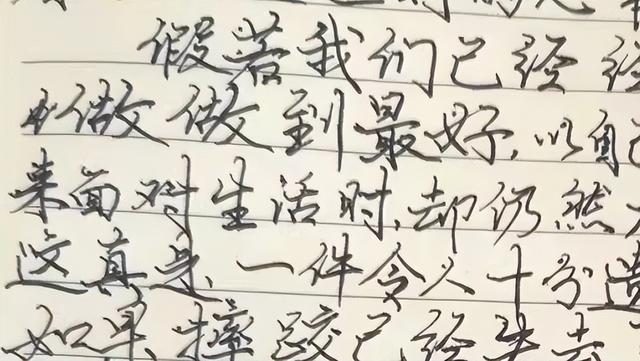 假若我们已经
做做到最好,以自己
来面对生活时,却仍然
这真是一件令人十分遗
如果摔跤已经失去